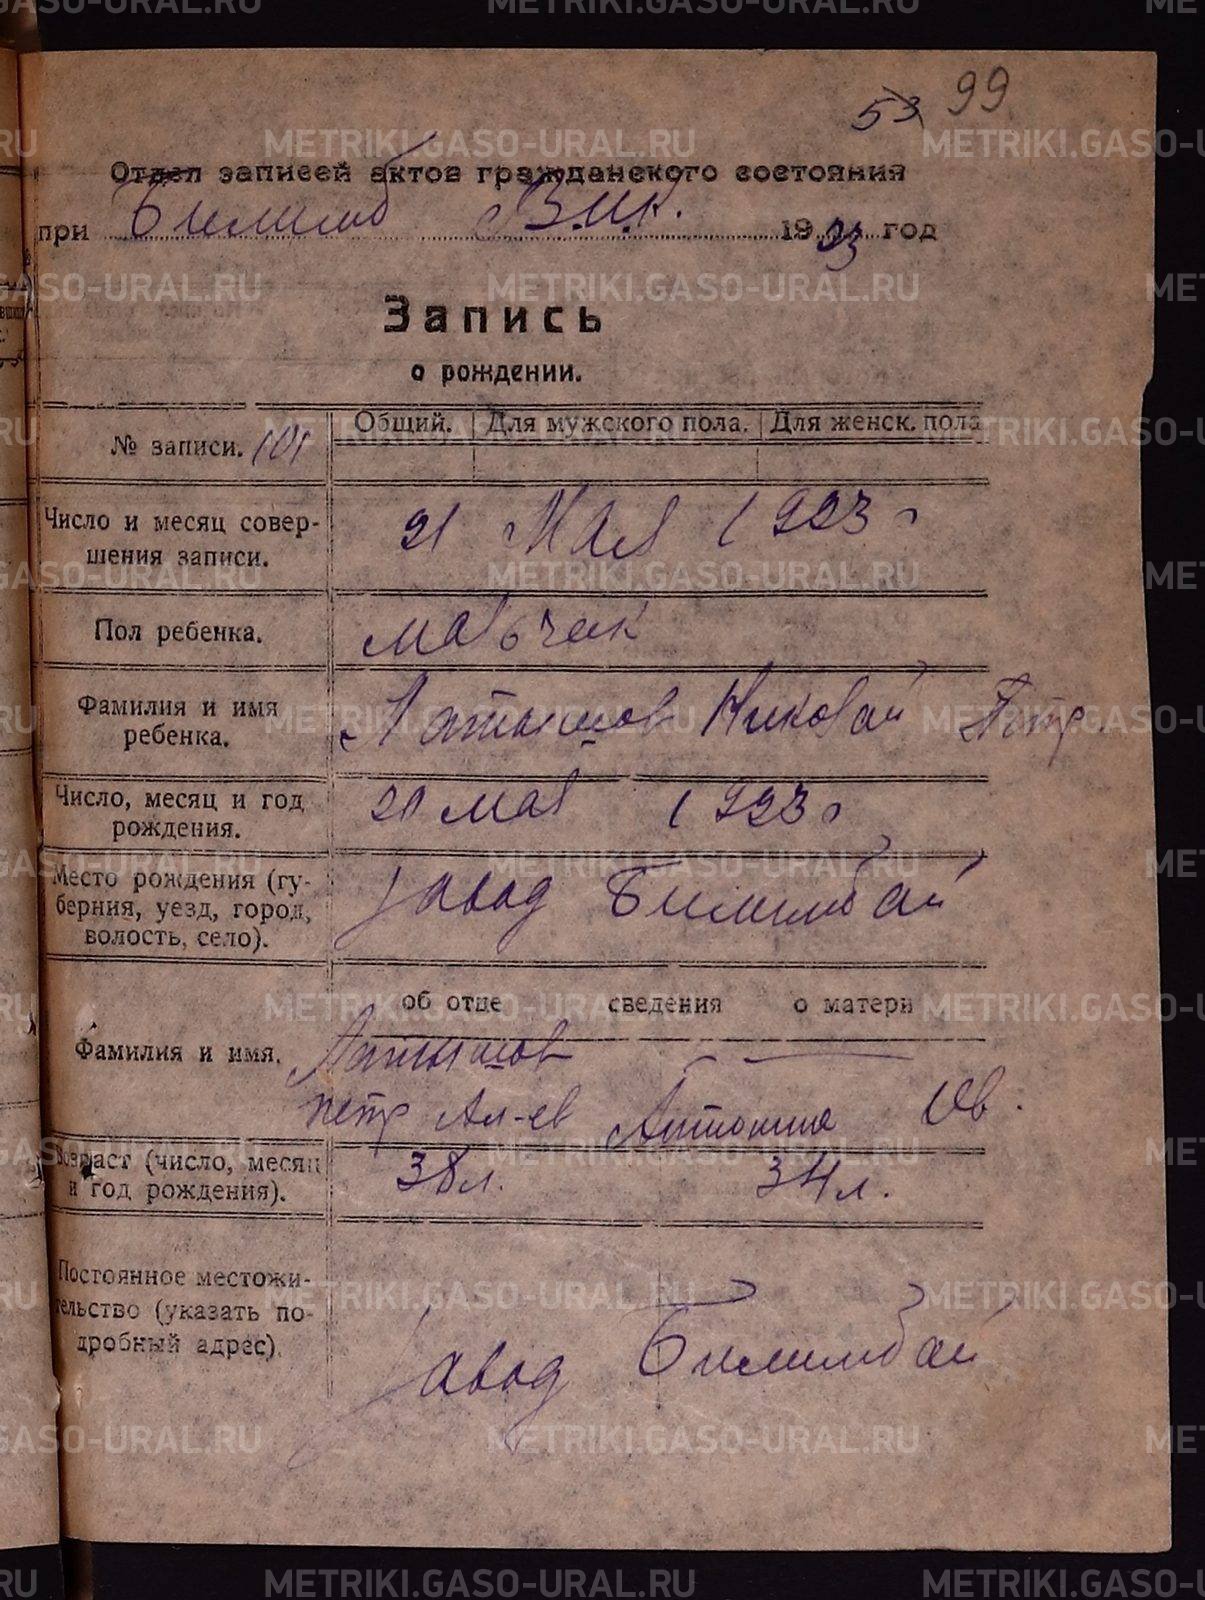 53 99
Отдел записей актов гражданского состояния
при Билимб В.И.К. 1923 год
Запись
о рождении.
№ записи. 101 Общий. Для мужского пола. Для женск. пола
Число и месяц совер-
шения записи. 21 Мая 1923 г
Пол ребенка. мальчик
Фамилия и имя
ребенка. Латышов Николай Петр.
Число, месяц и год
рождения. 20 мая 1923 г
Место рождения (гу-
берния, уезд, город,
волость, село). завод Билимбай
об отце сведения о матери
Фамилия и имя. Латышов
петр Ал-ев Антонина Ив.
Возраст (число, месяц
и год рождения). 38 л. 34 л.
Постоянное местожи-
тельство (указать по-
дробный адрес). Завод Билимбай
METRIKI.GASO-URAL.RU